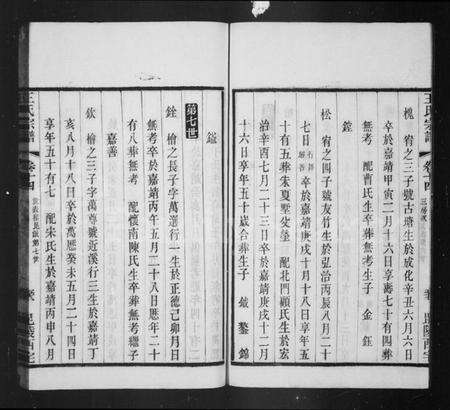 王氏宗譜 卷十四 三房 毗陵西宅
槐 宥之三子號古塘生於成化辛丑六月六日
卒於嘉靖甲寅二月十六日享壽七十有四葬
無考 配曹氏生卒葬無考生子 金 鈺
鏜
松 宥之四子號友竹生於弘治丙辰八月二十
七日 卒於嘉靖庚戌十月十八日享年五
十有五葬朱夏墅 配北門顧氏生於宏
治辛酉七月二十三日卒於嘉靖庚戌十二月
十六日享年五十歲合葬生子 鉞 鏊 錦
鎰
第七世
銓 檜之長子字萬選行一生於正德己卯月日
無考卒於嘉靖丙午五月二十八日歷年二十
有八葬無考 配懷南陳氏生卒葬無考繼子
嘉善
欽 檜之三子字萬尊號近溪行三生於嘉靖丁
亥八月十八日卒於萬歷癸未五月二十四日
享年五十有七 配朱氏生於嘉靖丙申八月
王氏宗譜 卷十四 第七世 毗陵西宅